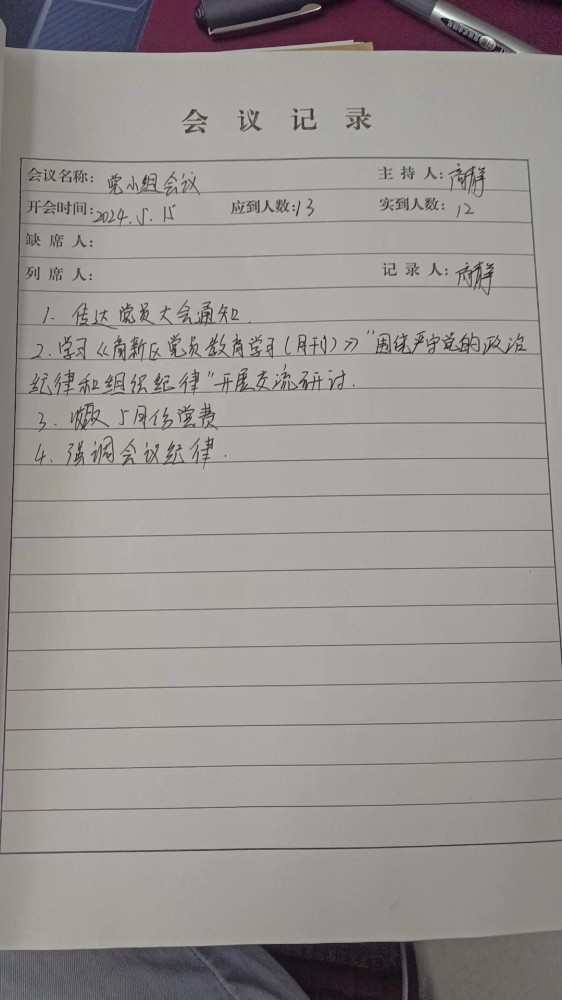 会议记录
会议名称: 党小组会议 主持人: 商静
开会时间: 2024.5.15 应到人数: 13 实到人数: 12
缺席人:
列席人: 记录人: 商静
1. 传达党员大会通知.
2. 学习《高新区党员教育学习(月刊)》"围绕严守党的政治
纪律和组织纪律"开展交流研讨.
3. 收取5月份党费
4. 强调会议纪律.